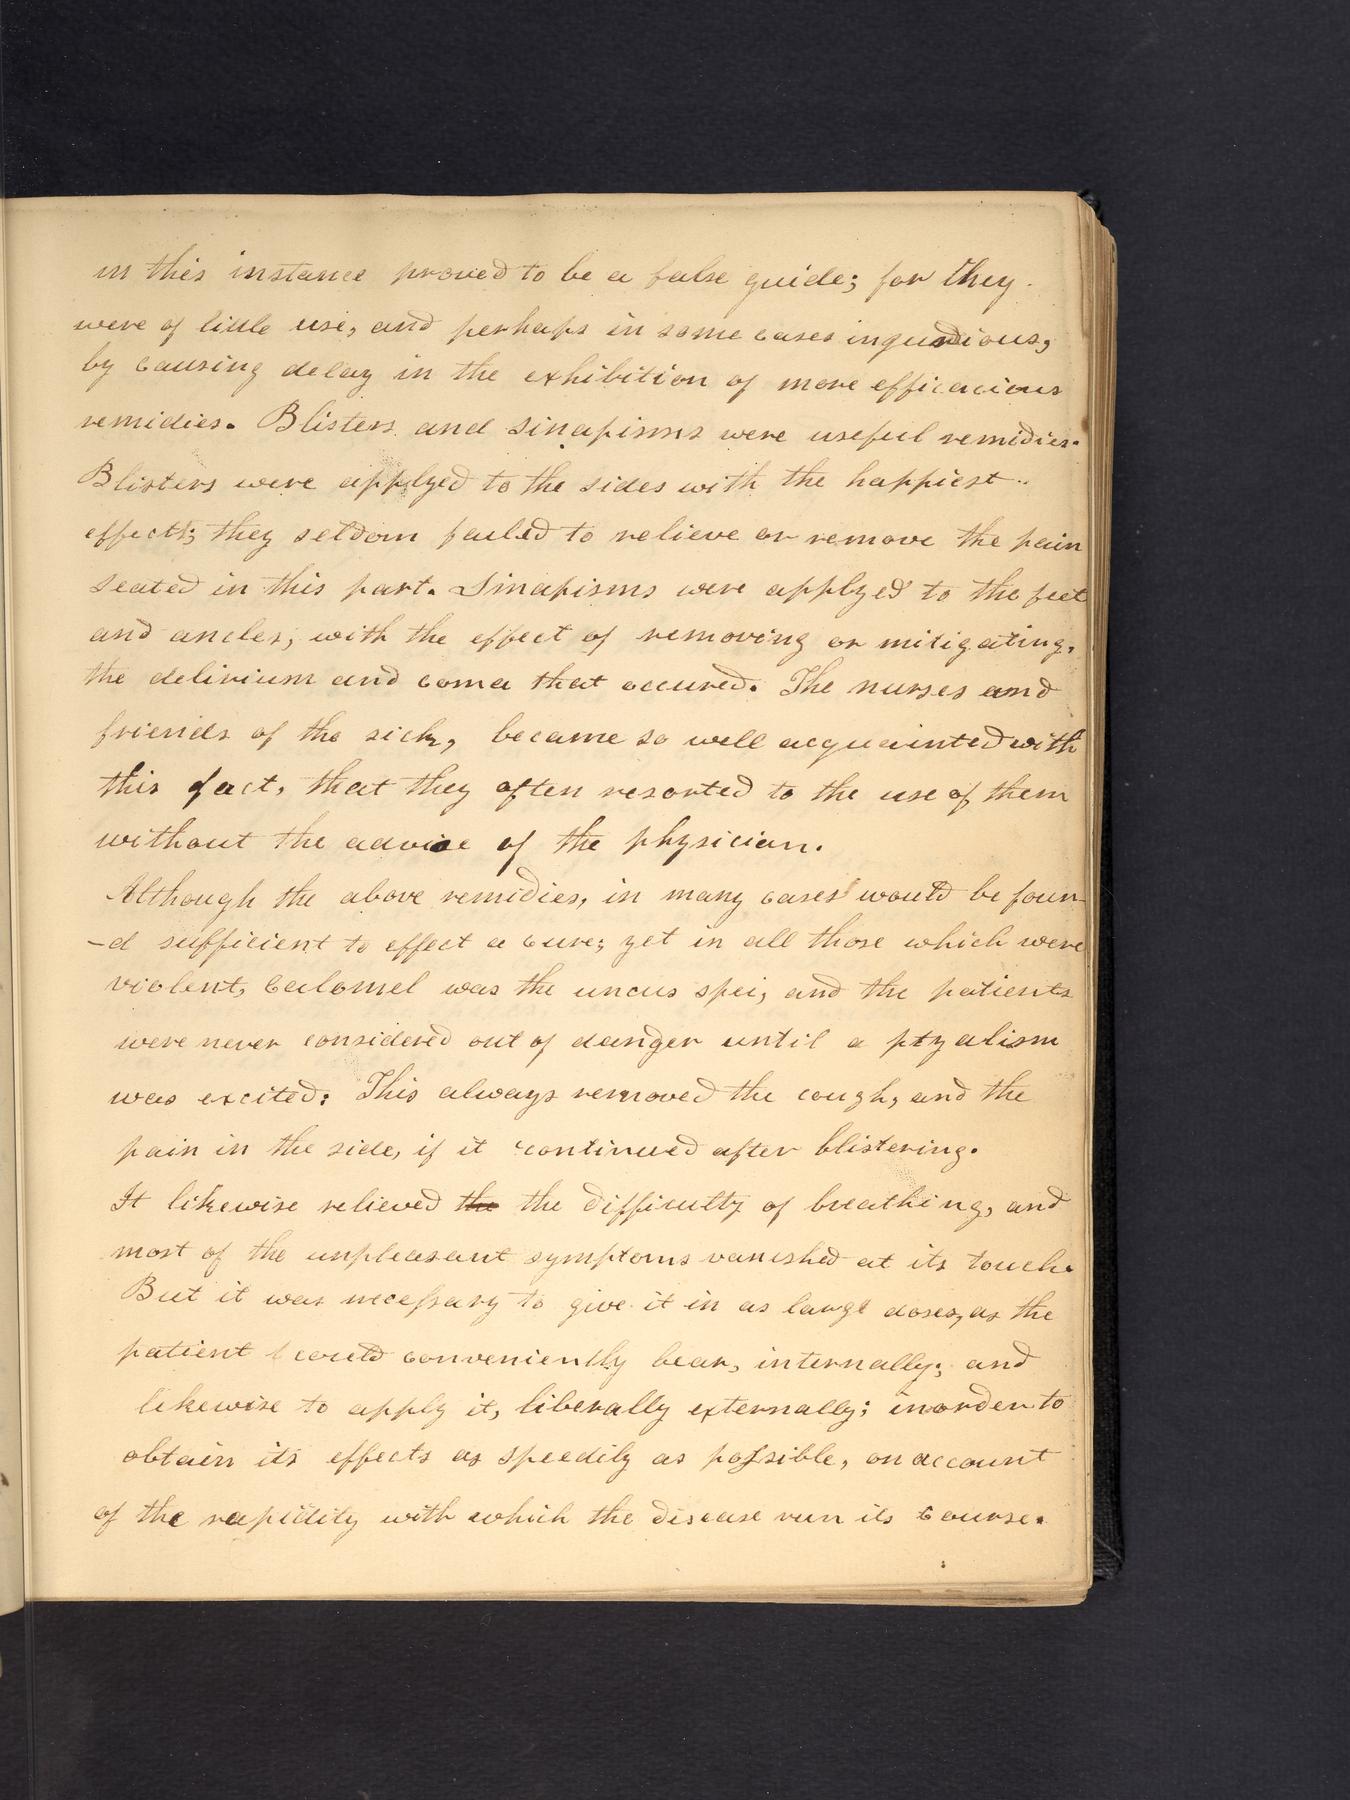 in this instance proved to be a false guide; for they
were of little use, and perhaps in some cases ingurdious,
by causing delay in the exhibition of more efficacious
remidies. Blisters and sinapisms were useful remidies.
Blisters were applyed to the sides with the happiest
effects; they seldom failed to relieve or remove the pain
seated in this part. Sinapisms were applyed to the feet
and ancles, with the effect of removing or mitigating,
the delirium and coma that occured. The nurses and
friends of the sick, became so well acquainted with
this fact, that they often resorted to the use of them
without the advice of the physician.
Although the above remidies, in many cases would be foun-
-d sufficient to effect a cure; yet in all those which were
violent, Calomel was the uncus spei, and the patients
were never considered out of danger until a ptyalism
was excited: This always removed the cough, and the
pain in the side, if it continued after blistering.
It likewise relieved the the difficulty of breathing, and
most of the unpleasant symptoms vanished at its touch.
But it was necessary to give it in as large doses, as the
patient could conveniently bear, internally; and
likewise to apply it, liberally externally; in order to
obtain its effects as speedily as possible, on account
of the rapidity with which the disease run its course.